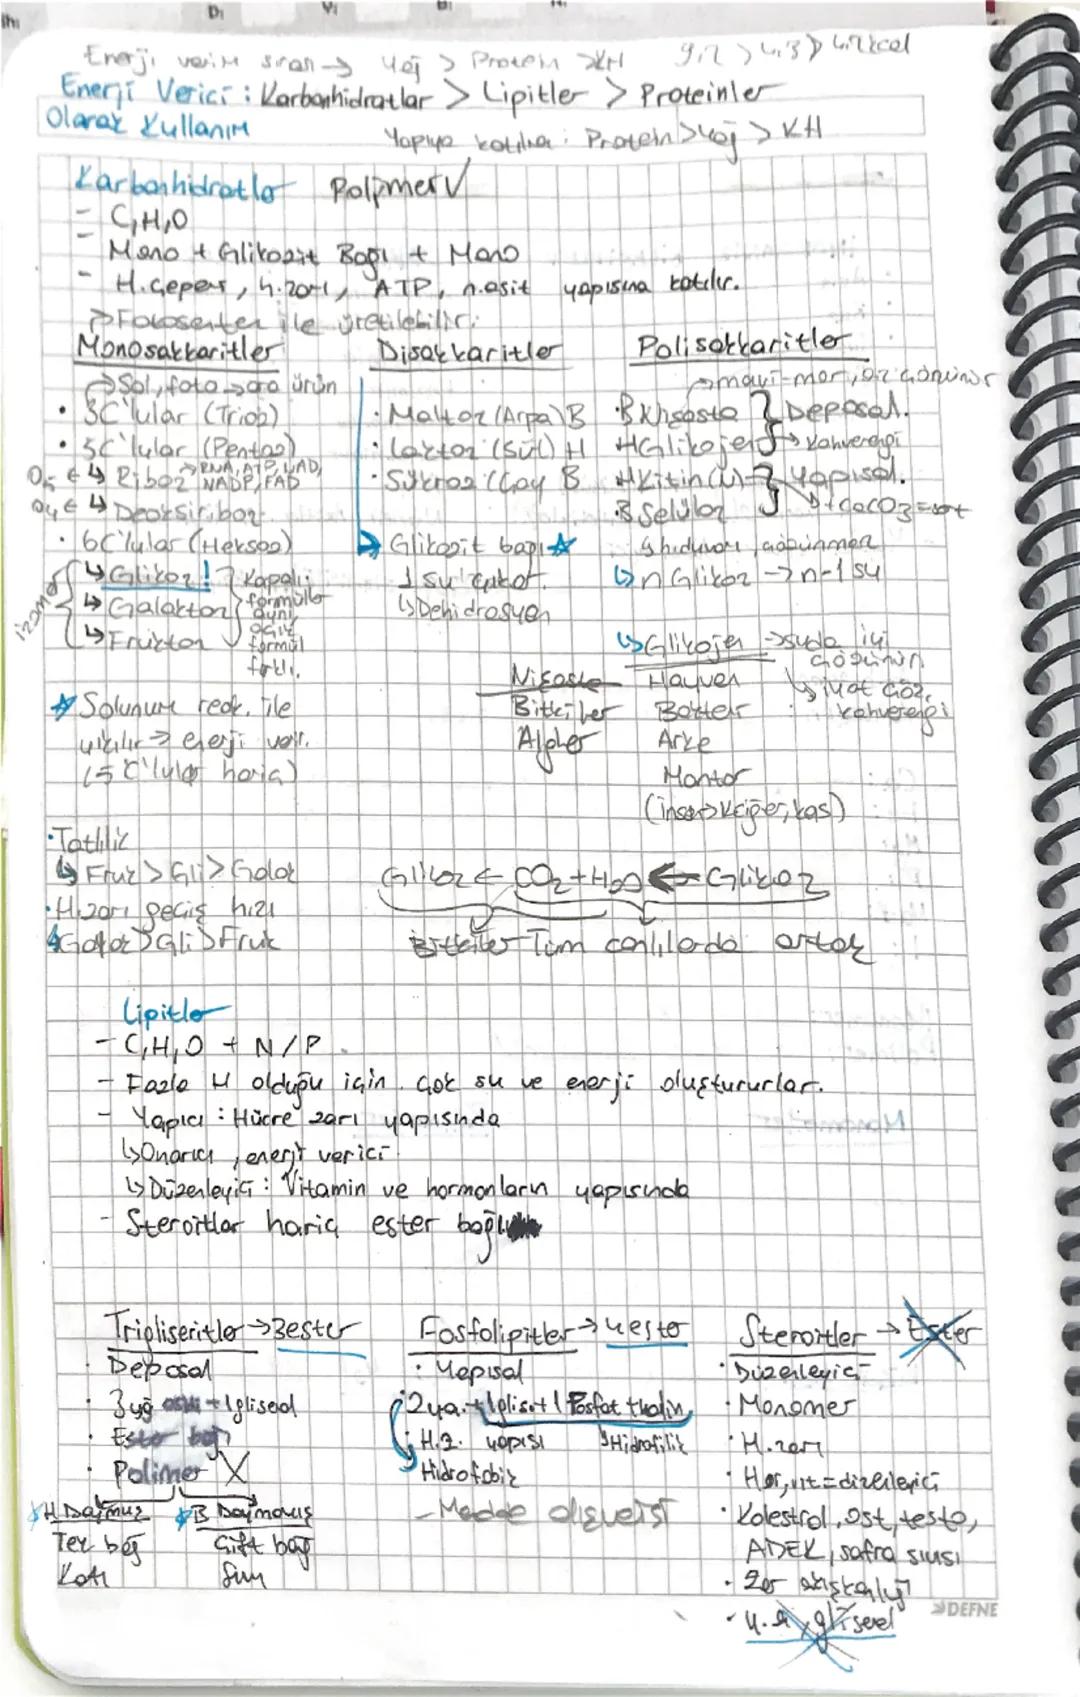 Enerji verim sırası → yağ > Protein > KH 9,2 > 4,3 > 4,2 kcal
Enerji Verici : Karbonhidratlar > Lipitler > Proteinler
Olarak Kullanım
Yapıya katılma : Protein > yağ > KH
Karbonhidratlar Polimer √
- C,H,O
- Mono + Glikozit Bağı + Mono
- H.çeperi, h.zarı, ATP, n.asit yapısına katılır.
⇒ Fotosentez ile üretilebilir.
Monosakkaritler Disakkaritler Polisakkaritler
→ Sol, foto → ara ürün
→ mavi-mor, az çözünür
• 3C'lular (Trioz)
• Maltoz (Arpa) B
• B Nişasta } Deposal.
• 5C'lular (Pentoz)
• Laktoz (Süt) H
H Glikojen → Kahverengi
O5 ← ↳ Riboz → RNA, ATP, NAD, NADP, FAD
• Sükroz (Çay B
H Kitin (N) } Yapısal.
O4 ← ↳ Deoksiriboz
• B Selüloz
↳ + CaCO3 = sert
• 6C'lular (Heksoz)
→ Glikozit bağı ☆
İzomer
↳ Glikoz!
↳ Galaktoz
↳ Fruktoz
Kapalı formüller aynı açık formül farklı.
1 su çıkar.
↳ Dehidrasyon
↳ n Glikoz → n-1 su
↳ Glikojen → suda iyi çözünür
↳ iyot çöz. kahverengi
Nişasta Hayvan
Bitkiler Bakteri
Algler Arke
Mantar
(insan → k.ciğer, kas)
☆ Solunum reak. ile
yıkılır → enerji verir.
(5C'lular hariç)
• Tatlılık
↳ Fruk > Gli > Galak
• H.zarı geçiş hızı
↳ Galak > Gli > Fruk
Glikoz ← CO2 + H2O ← Glikoz
Bitkiler Tüm canlılarda ortak
Lipitler
- C,H,O + N/P
- Fazla H olduğu için çok su ve enerji oluştururlar.
- Yapıcı : Hücre zarı yapısında
↳ Onarıcı, enerji verici
↳ Düzenleyici : Vitamin ve hormonların yapısında
- Steroitler hariç ester bağı
Trigliseritler → 3 ester Fosfolipitler → y ester Steroitler → Ester
• Deposal
• 3 yağ asiti + 1 gliserol
• Ester bağı
• Polimer X
H Doymuş B Doymamış
Tek bağ Çift bağ
Katı Sıvı
• Yapısal
• 2 ya. + 1 gliserol + 1 Fosfat + kolin
• H.z. yapısı
→ Hidrofilik
Hidrofobik
- Madde alışverişi
• Düzenleyici
• Monomer
• H.zarı
• Hor, vit = düzenleyici
• Kolestrol, öst, testo,
ADEK, safra sıvısı
• Zar akışkanlığı
• y.a, gliserol
DEFNE